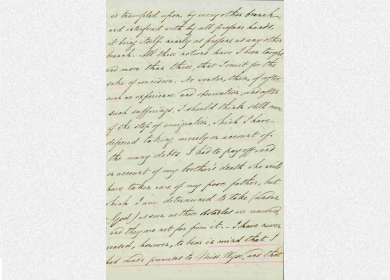 is trampled upon by every other branch
and interfered with by all profane hands,
it being itself nearly as high as any other
branch. All these notions have I been taught
and more than these, that I omit for the
sake of concision. No wonder, then, if after
such an experience and observation, and after
such sufferings, I should think still more
of the step of emigration, which I have
deferred taking merely on account of
the many debts I had to pay off, and
on account of my brother's death who would
have taken care of my poor father, but
which I am determined to take (
God) as soon as these obstacles are removed,
and they are not far from it. — I have never
ceased, however, to bear in mind that I
had made promises to Miss, and that